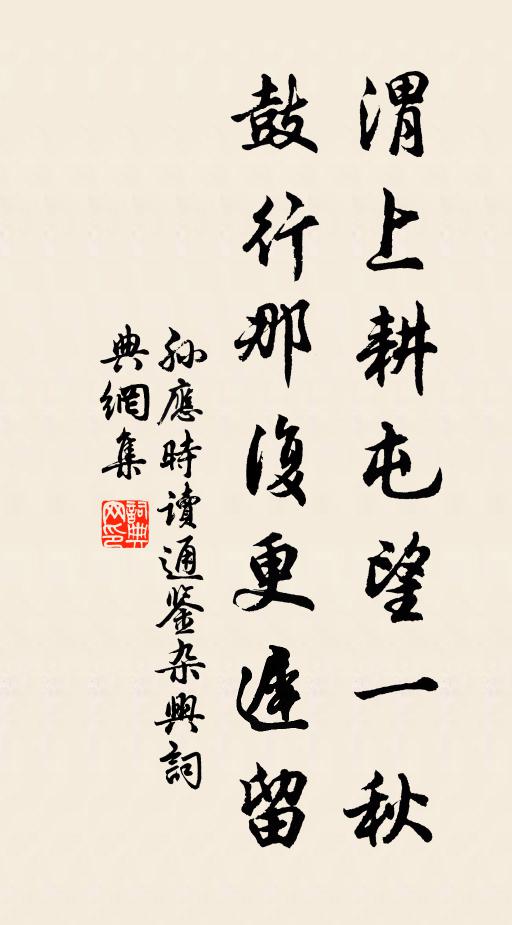 渭上耕屯望一秋
鼓行那復更遲留
孫應時讀通鉴杂興詞
典網集
詞典
网印